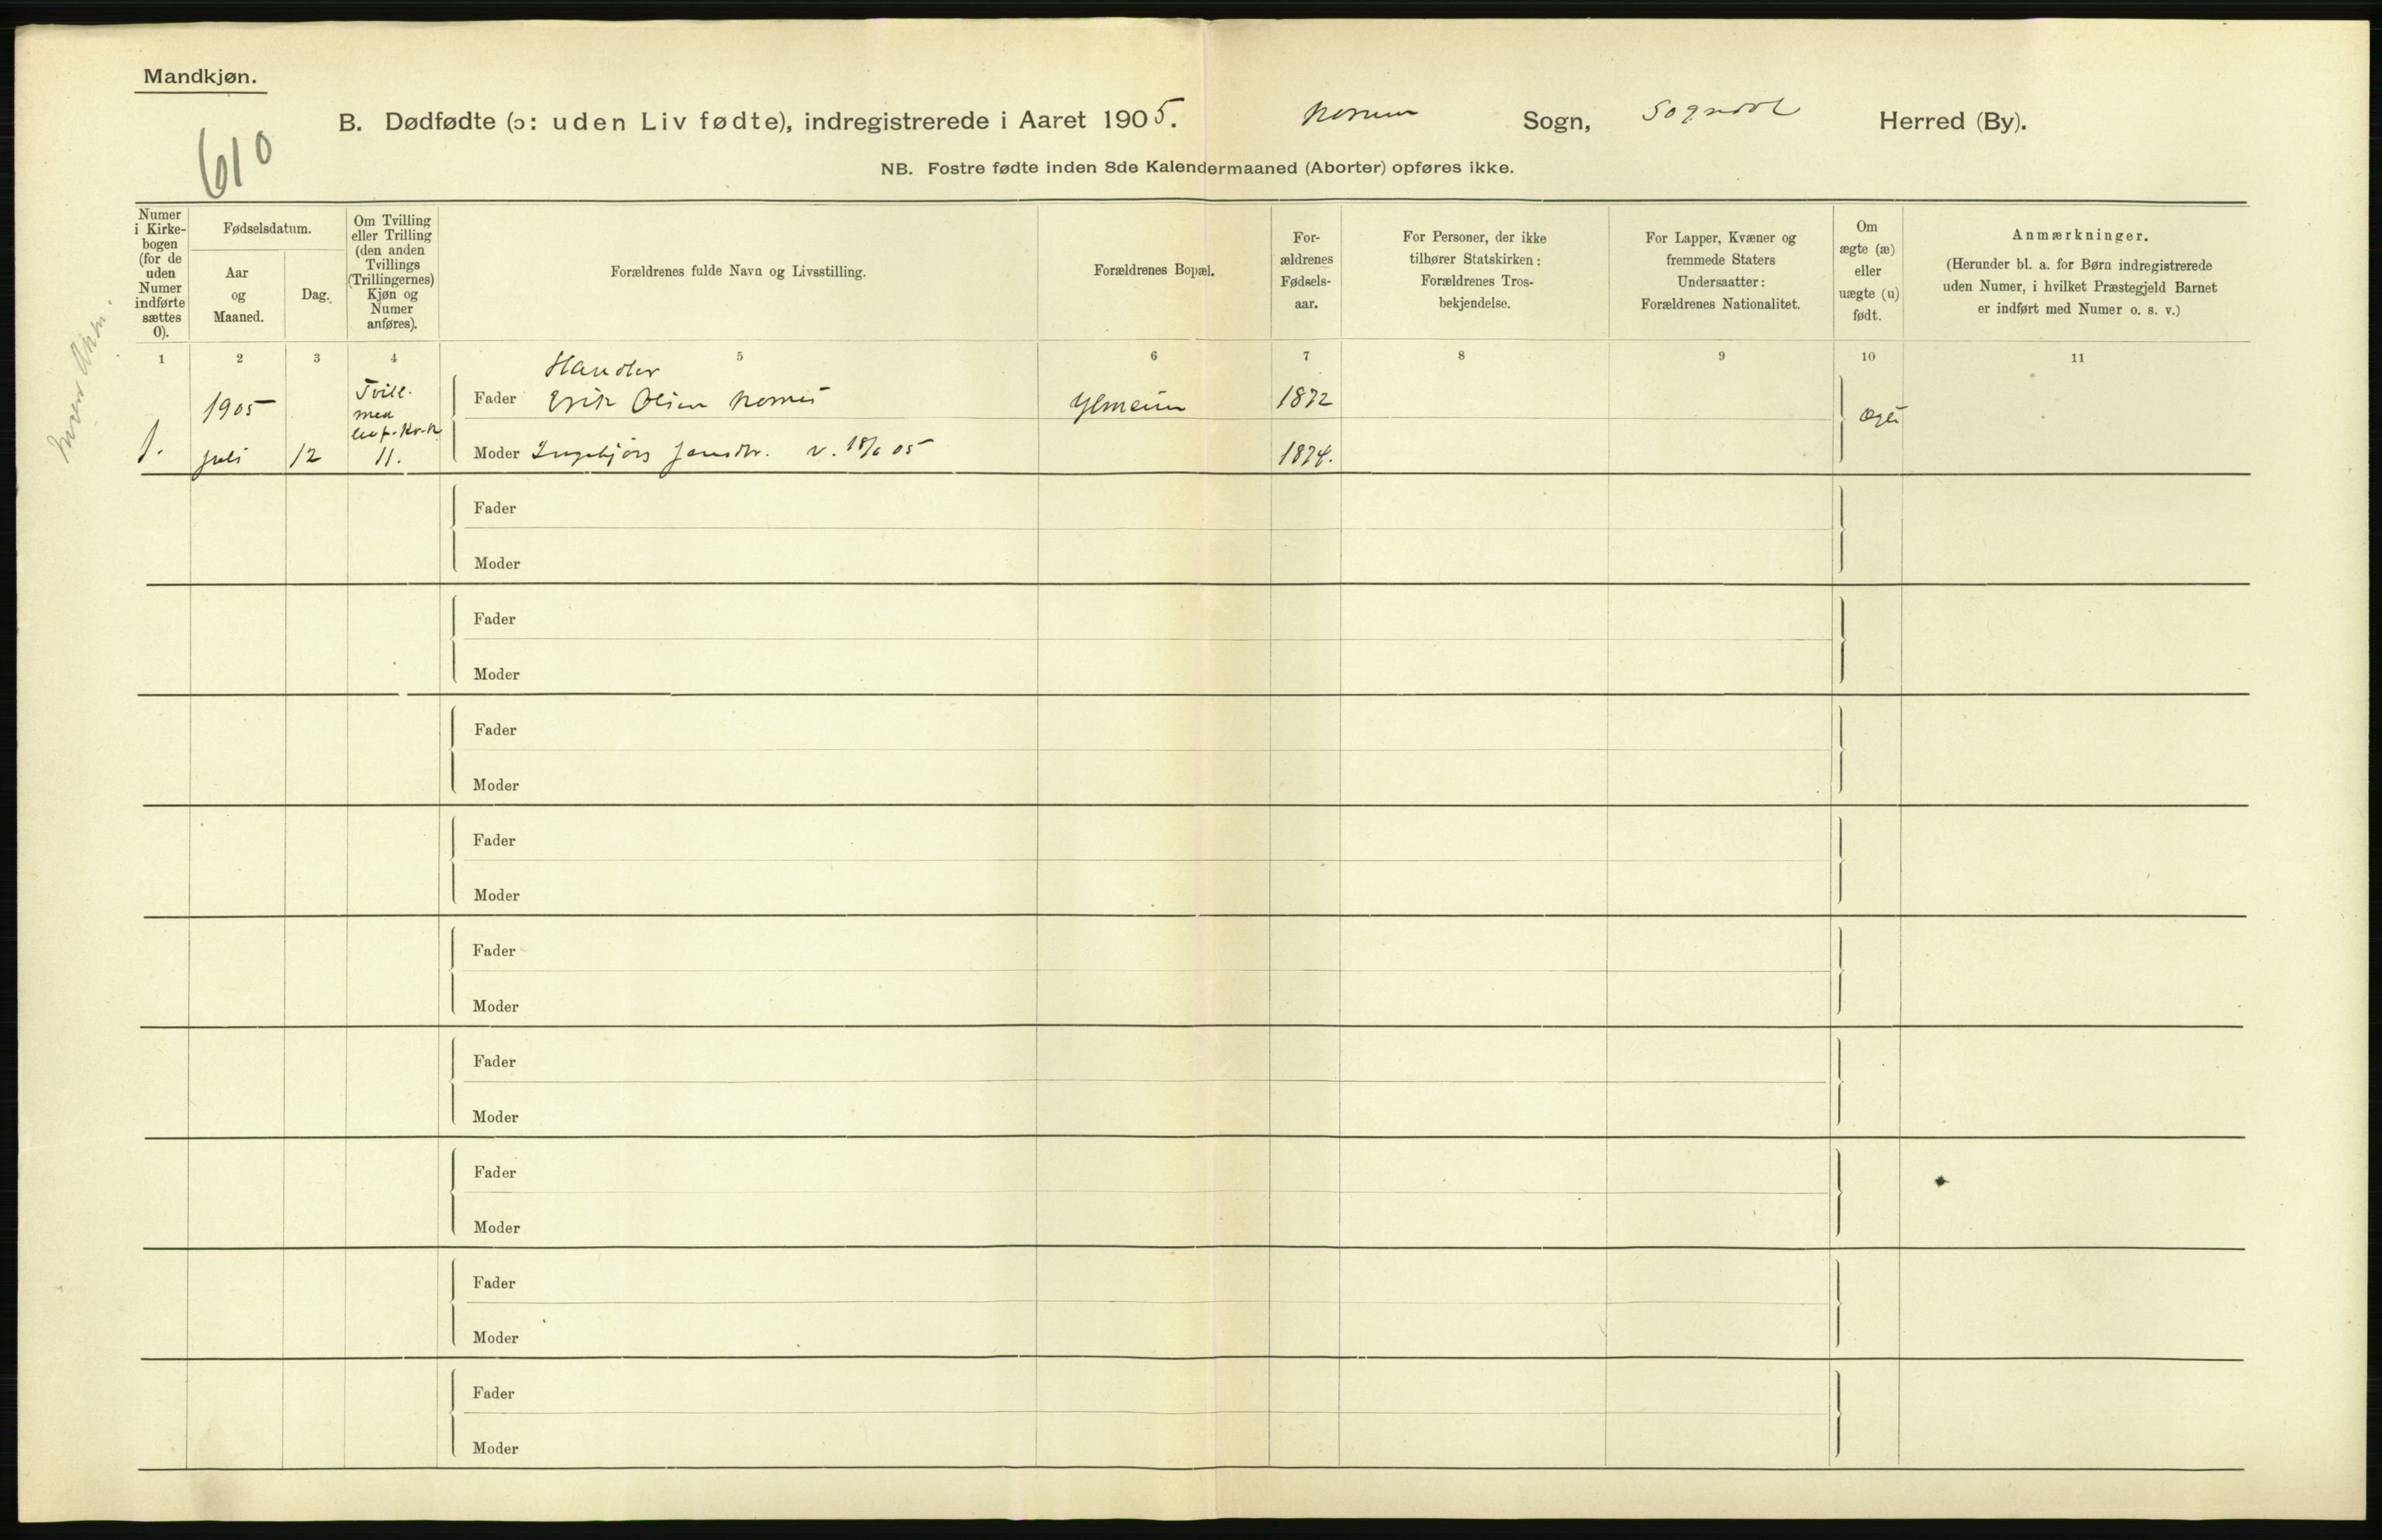 Mandkjøn.
B. Dødfødte (ɔ: uden Liv fødte), indregistrerede i Aaret 1905. Norum Sogn, Sogndal Herred (By).
610
NB. Fostre fødte inden 8de Kalendermaaned (Aborter) opføres ikke.
Numer
i Kirke-
bogen
(for de
uden
Numer
indførte
sættes
0).
Fødselsdatum.
Aar
og
Maaned.
Dag.
Om Tvilling
eller Trilling
(den anden
Tvillings
(Trillingernes)
Kjøn og
Numer
anføres).
Forældrenes fulde Navn og Livsstilling.
Forældrenes Bopæl.
For-
ældrenes
Fødsels-
aar.
For Personer, der ikke
tilhører Statskirken:
Forældrenes Tros-
bekjendelse.
For Lapper, Kvæner og
fremmede Staters
Undersaatter:
Forældrenes Nationalitet.
Om
ægte (æ)
eller
uægte (u)
født.
Anmærkninger.
(Herunder bl. a. for Børn indregistrerede
uden Numer, i hvilket Præstegjeld Barnet
er indført med Numer o. s. v.)
1 2 3 4 5 6 7 8 9 10 11
1.
1905
juli
12
Tvill.
med
11.
Handler
Fader Erik Olsen Nornes
Moder Ingebjørg Jensdtr. v. 18/6 05
Ylmeim
1872
1874.
Ægte
Fader
Moder
Fader
Moder
Fader
Moder
Fader
Moder
Fader
Moder
Fader
Moder
Fader
Moder
Fader
Moder
Fader
Moder